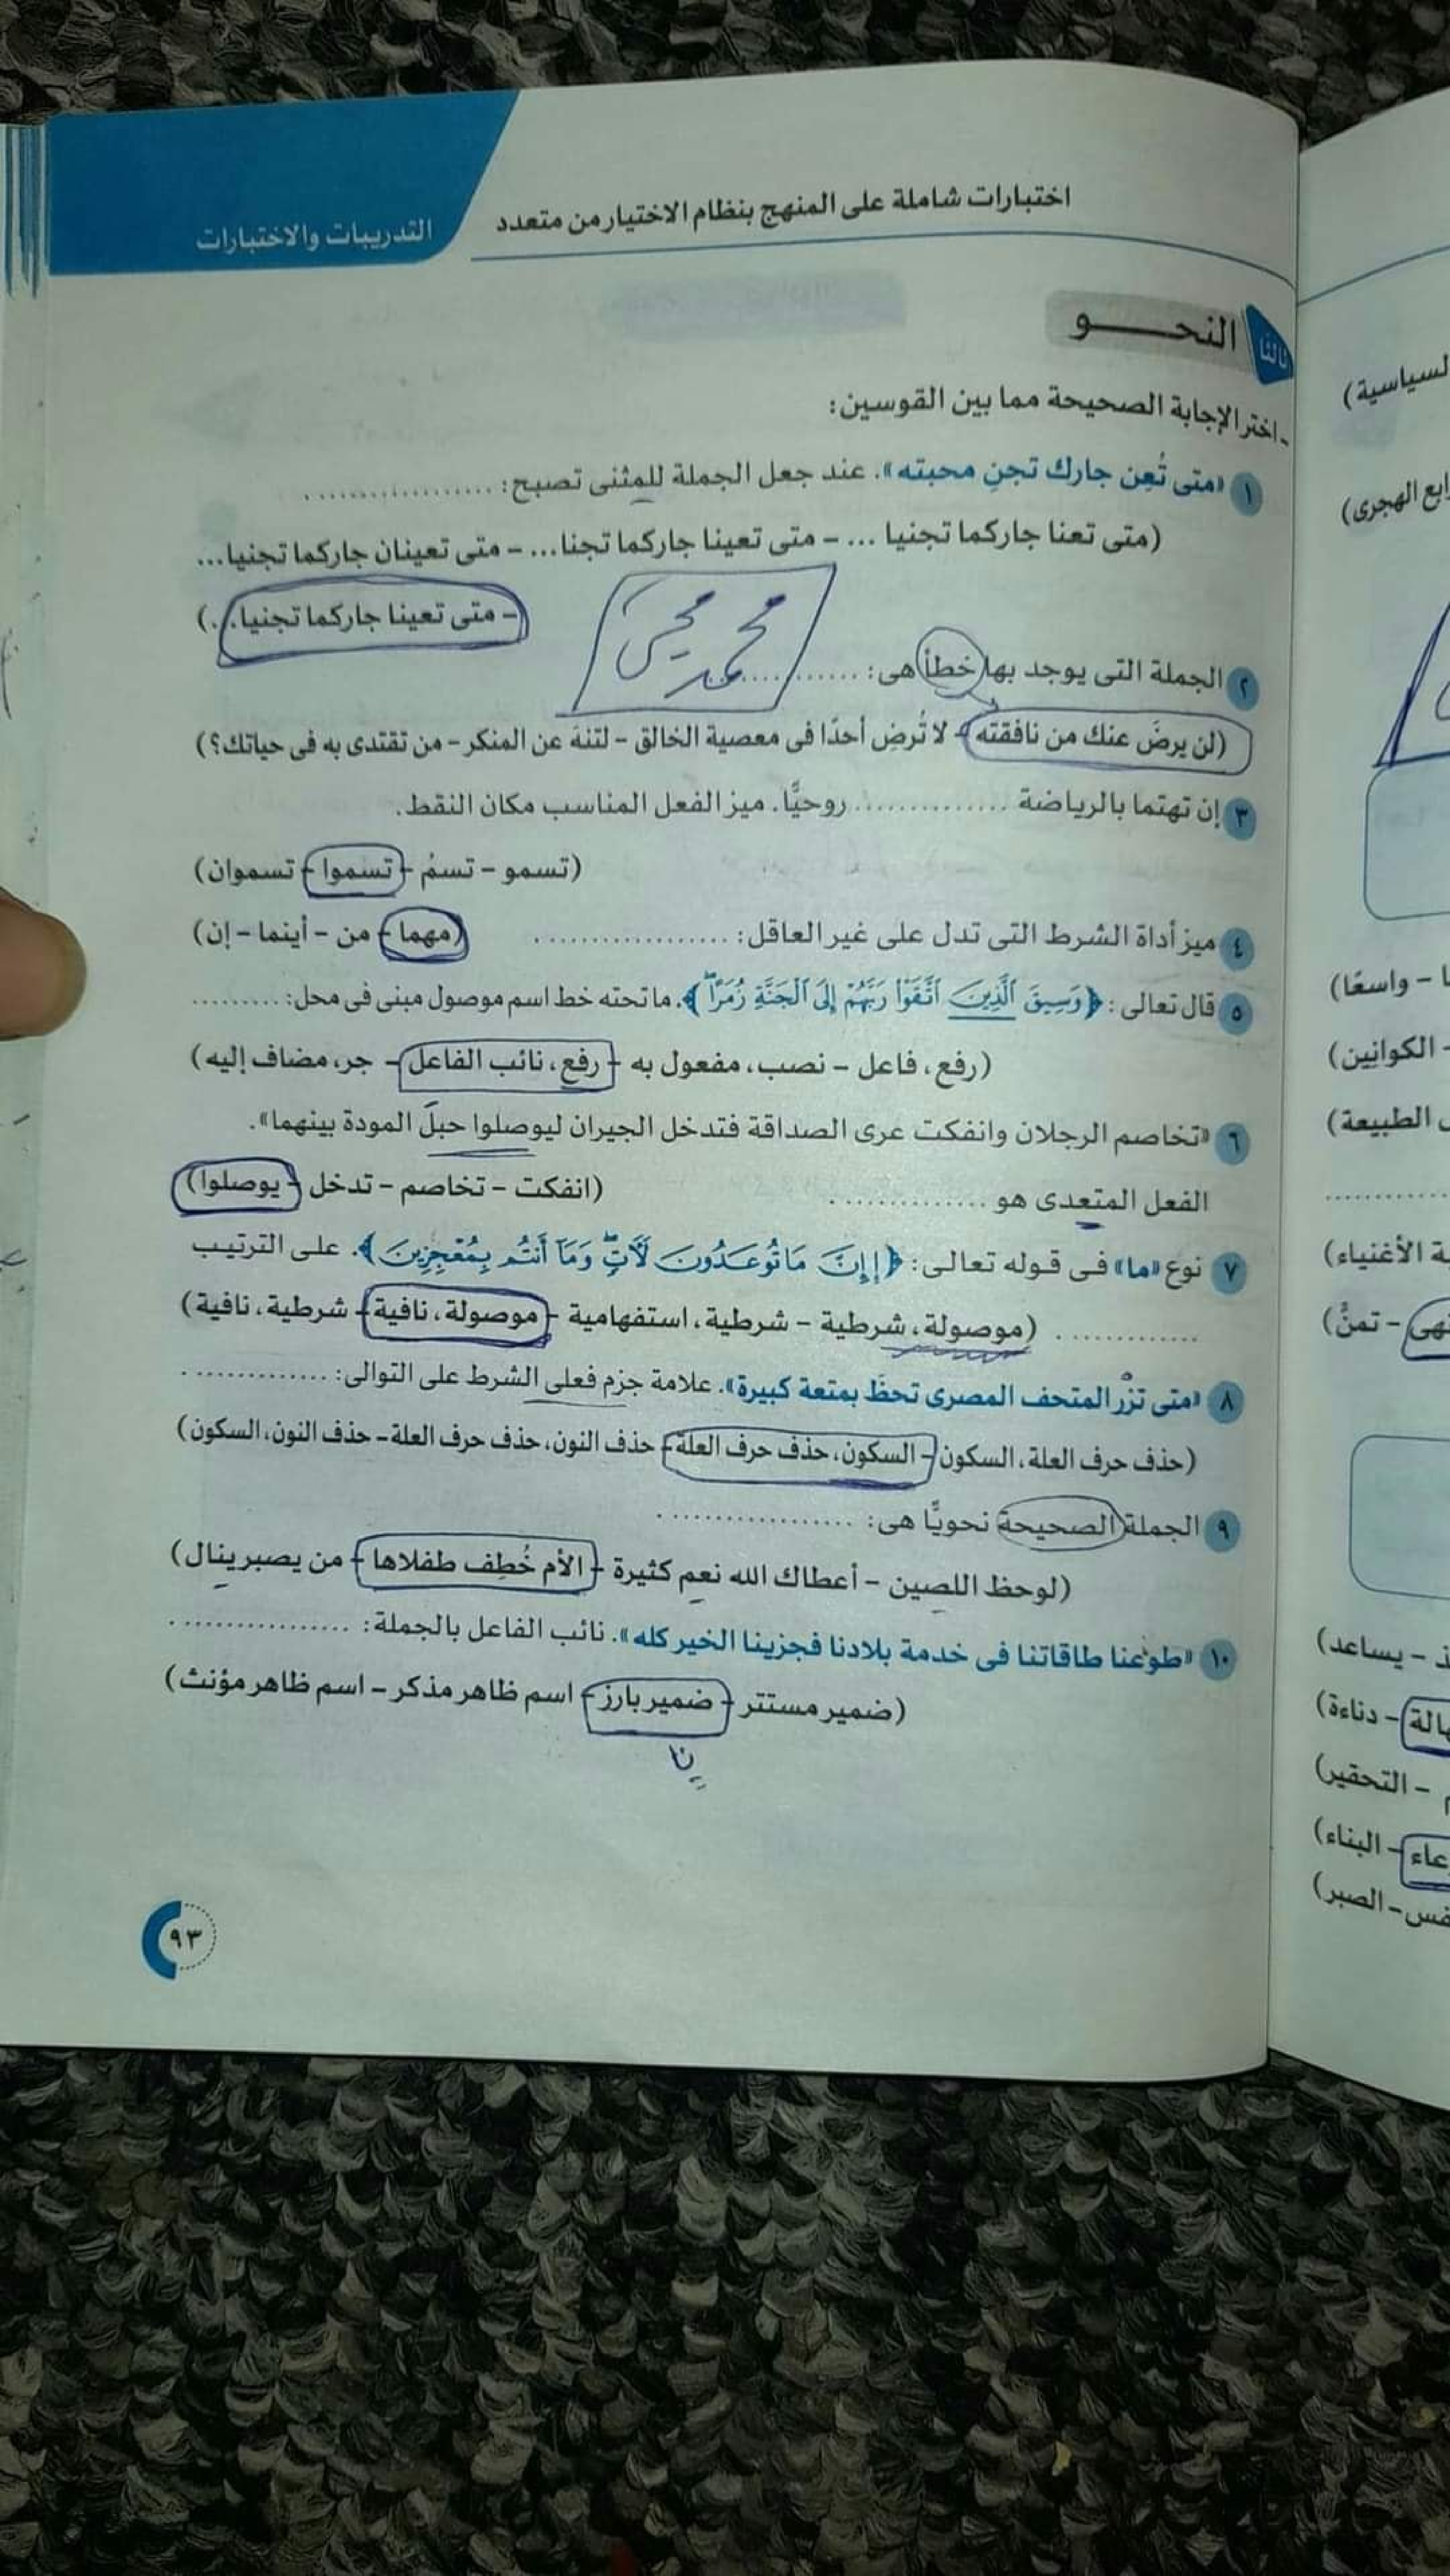 اختبارات شاملة على المنهج بنظام الاختيار من متعدد
التدريبات والاختبارات
ثالثا
النحـــو
- اختر الإجابة الصحيحة مما بين القوسين:
١ «متى تُعِن جارك تجنِ محبته». عند جعل الجملة للمثنى تصبح: ..................
(متى تعنا جاركما تجنيا ... – متى تعينا جاركما تجنا... – متى تعينان جاركما تجنيا...
– متى تعينا جاركما تجنيا...)
محمد محيى
٢ الجملة التى يوجد بها خطأ هى: ..................
(لن يرضَ عنك من نافقته – لا تُرضِ أحدًا فى معصية الخالق – لتنهَ عن المنكر – من تقتدى به فى حياتك؟)
٣ إن تهتما بالرياضة .............. روحيًّا. ميز الفعل المناسب مكان النقط.
(تسمو – تسمُ – تسموا – تسموان)
٤ ميز أداة الشرط التى تدل على غير العاقل: ..................
(مهما – من – أينما – إن)
٥ قال تعالى: ﴿وَسِيقَ ٱلَّذِينَ ٱتَّقَوْا۟ رَبَّهُمْ إِلَى ٱلْجَنَّةِ زُمَرًا ۖ﴾. ما تحته خط اسم موصول مبنى فى محل: .........
(رفع، فاعل – نصب، مفعول به – رفع، نائب الفاعل – جر، مضاف إليه)
٦ «تخاصم الرجلان وانفكت عرى الصداقة فتدخل الجيران ليوصلوا حبلَ المودة بينهما».
الفعل المتعدى هو ..............
(انفكت – تخاصم – تدخل – يوصلوا)
٧ نوع «ما» فى قوله تعالى: ﴿إِنَّ مَا تُوعَدُونَ لَآتٍ ۖ وَمَآ أَنتُم بِمُعْجِزِينَ﴾. على الترتيب
............. (موصولة، شرطية – شرطية، استفهامية – موصولة، نافية – شرطية، نافية)
٨ «متى تزُرْ المتحف المصرى تحظَ بمتعة كبيرة». علامة جزم فعلى الشرط على التوالى: ..............
(حذف حرف العلة، السكون – السكون، حذف حرف العلة – حذف النون، حذف حرف العلة – حذف النون، السكون)
٩ الجملة الصحيحة نحويًّا هى: ..................
(لوحظ اللصين – أعطاك الله نعم كثيرة – الأم خُطِف طفلاها – من يصبر ينال)
١٠ «طوعنا طاقاتنا فى خدمة بلادنا فجزينا الخير كله». نائب الفاعل بالجملة: ..................
(ضمير مستتر – ضمير بارز – اسم ظاهر مذكر – اسم ظاهر مؤنث)
نا
٩٣
السياسية)
رابع الهجرى)
– واسعًا)
– الكوانين)
الطبيعة)
الأغنياء)
– تمنَّ)
– يساعد)
– دناءة)
– التحقير)
– البناء)
– الصبر)